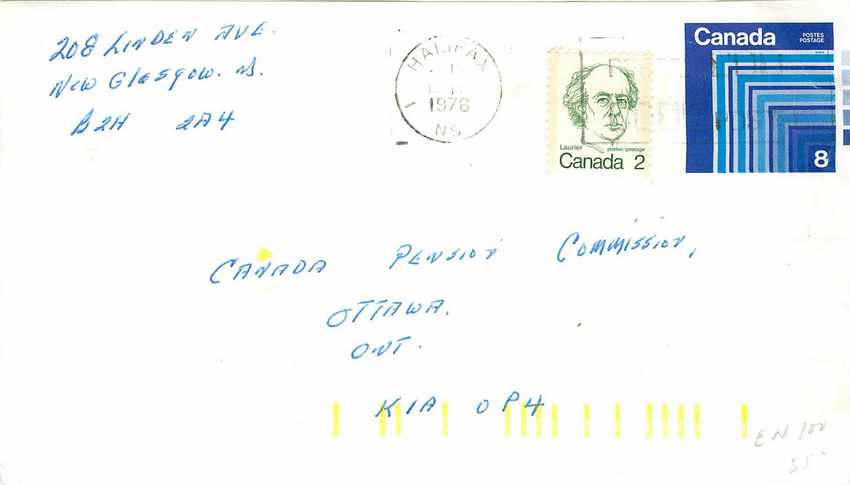 208 LINDEN AVE.
NEW GLASGOW. N.S.
B2H 2A4
HALIFAX
1
1976
NS
Laurier postes/postage
Canada 2
Canada POSTES
POSTAGE
8
CANADA PENSION COMMISSION,
OTTAWA.
ONT.
K1A 0P4
EN 100
35